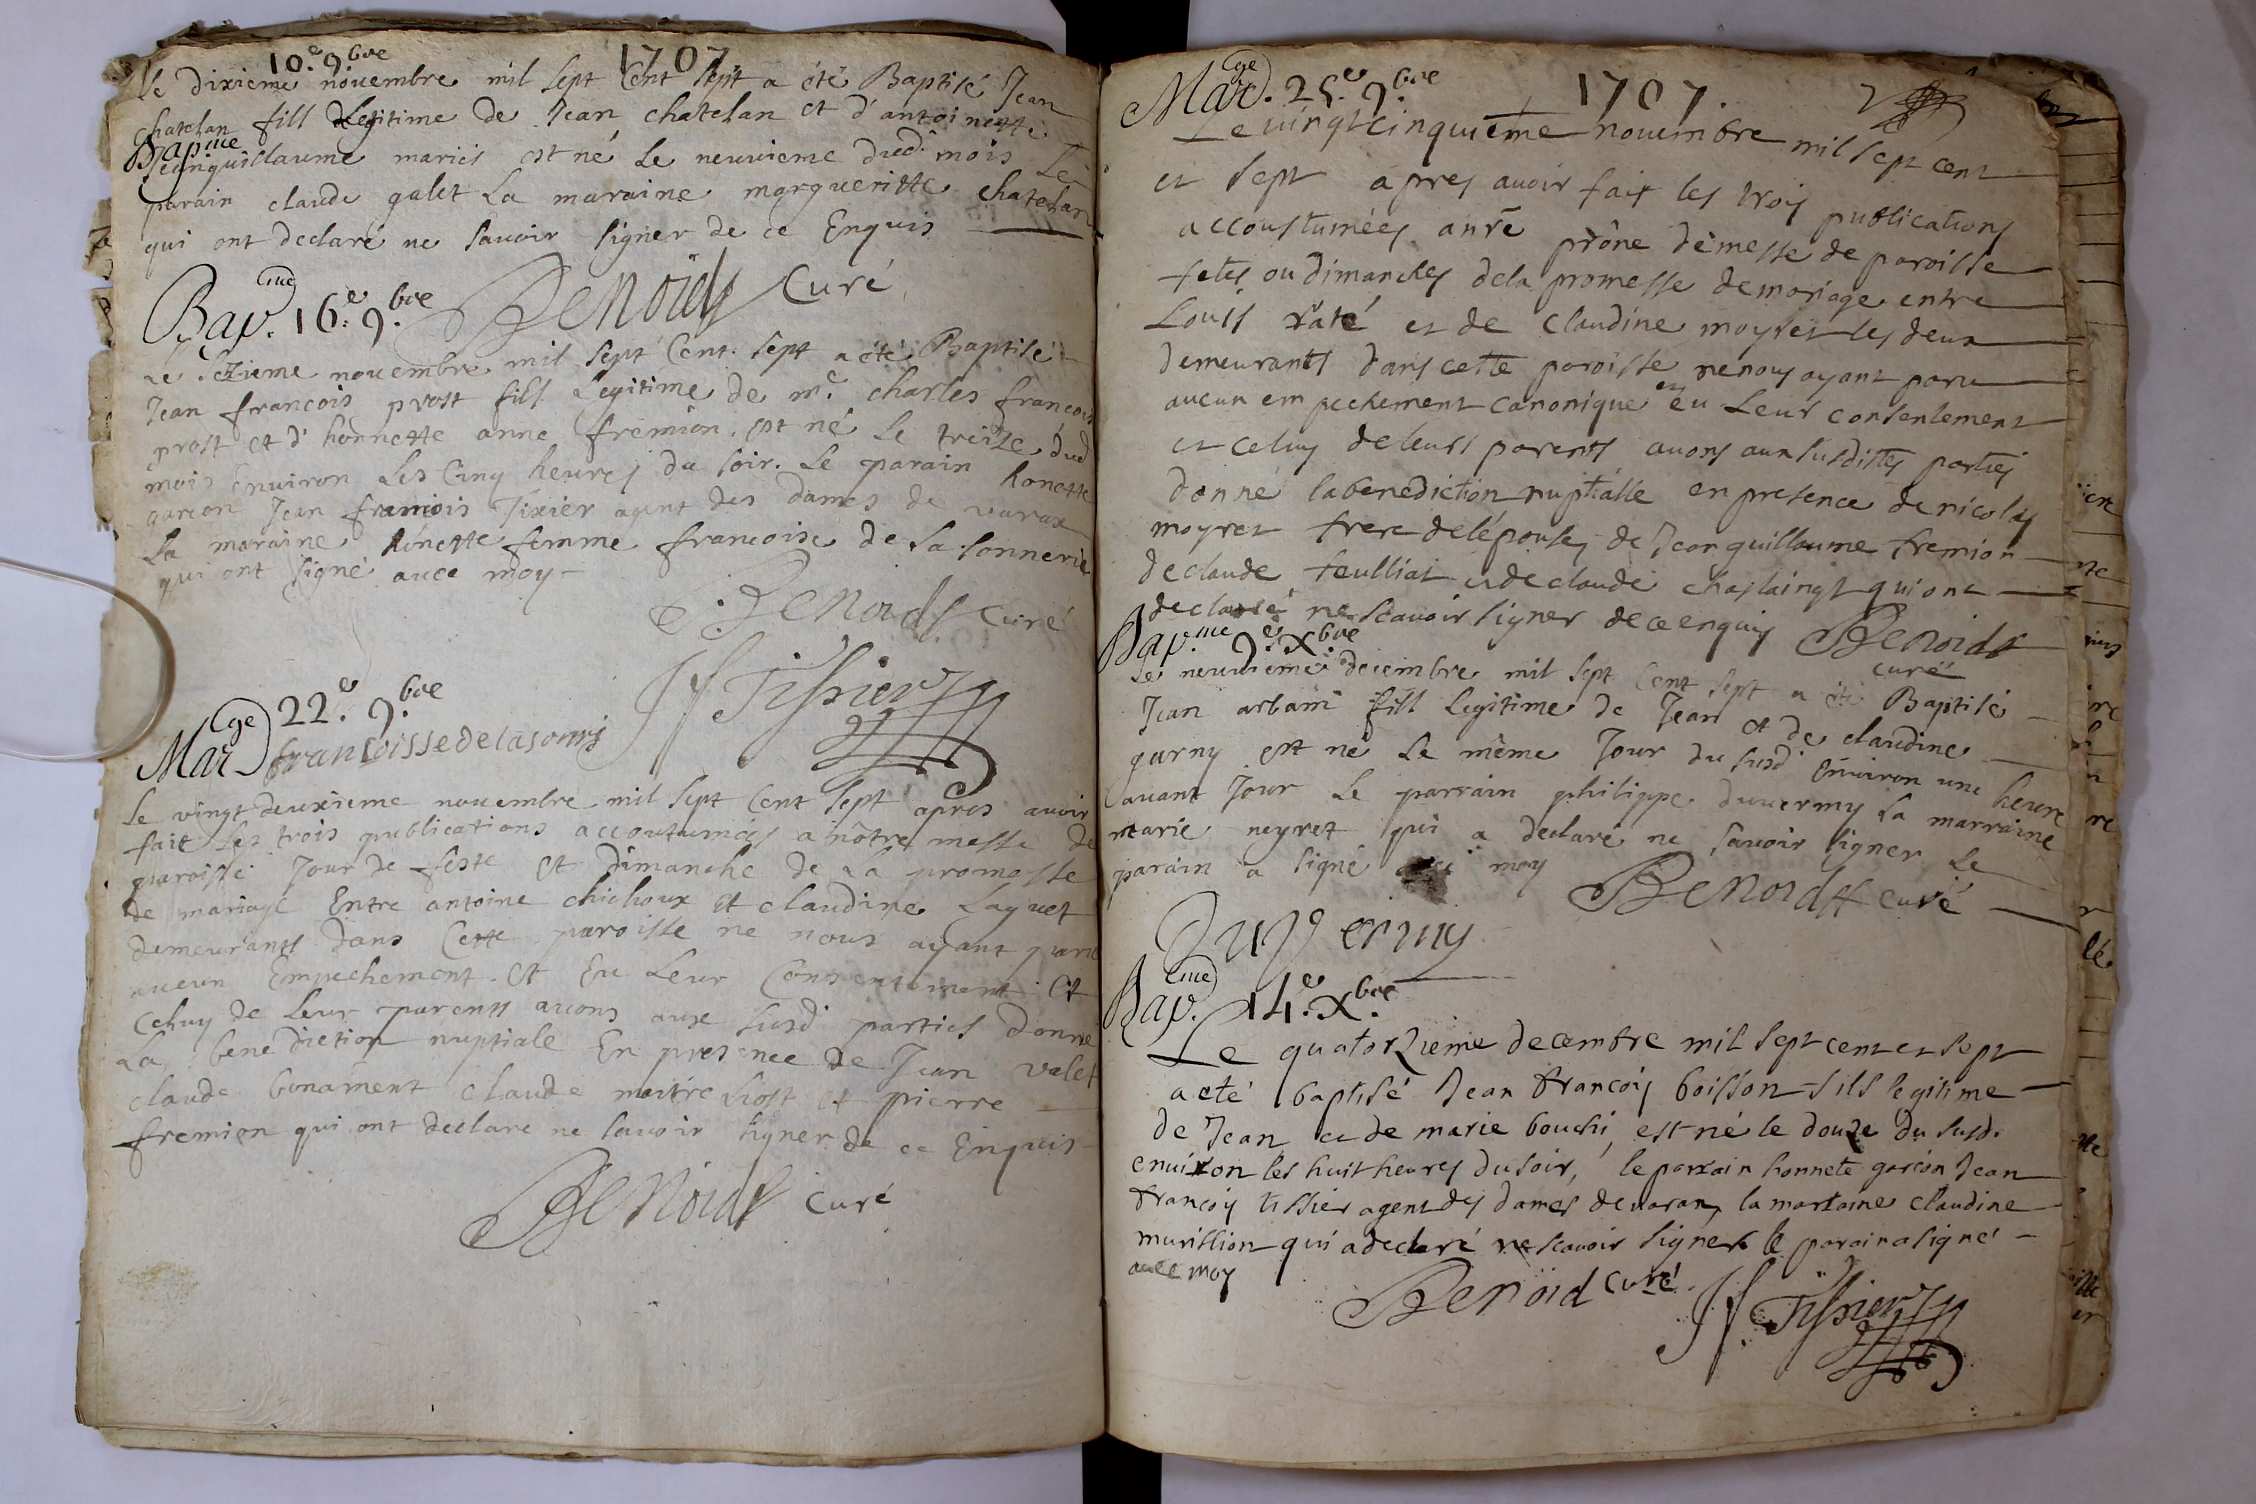 10.e 9.bre 1707
le dixieme novembre mil sept Cent sept a été Baptisé Jean
chatelan fill Legitime de Jean chatelan et d'antoinette
Bap.me
Jeanguillaume mariés est né Le neuvieme dud. mois Le
parain claude galet La maraine margueritte chatelan
qui ont declaré ne savoir signer de ce Enquis
BENoids Curé
Bap.me 16.e 9.bre
Le sezieme novembre mil sept Cent sept a été Baptisé
Jean francois prost fill Legitime de mr. charles francois
prost et d'honnette anne fremion est né Le treize dud
mois Environ Les Cinq heures du soir. Le parain honette
garcon Jean francois Tixier agent des dames de varax
La maraine hônette femme francoise de La sonnerie
qui ont signé avec moy
BENoids curé
Jf Tissier
Mar.Cge 22.e 9.bre
francoisse de la sonrj
Le vingt deuxieme novembre mil sept Cent sept apres avoir
fait Les trois publications accoutumées a nôtre messe de
paroisse Jour de feste et dimanche de La promesse
de mariage Entre antoine chichoux et claudine Laquet
demeurants dans Cette paroisse ne nous ayant paru
aucun Empechement et Eu Leur Consentement et
Celuy de Leur parents avons aux susd parties donné
La benediction nuptiale En presence de Jean valet
claude bonament claude maitre Liost et pierre
fremion qui ont declare ne savoir signer de ce Enquis
BENoids Curé
Mar.Cge 25.e 9.bre 1707.
Le vingt cinquiême novembre mil sept cent
et sept apres avoir fait les trois publications
accoustumées an're prône de messe de paroisse
fetes ou dimanches de la promesse de mariage entre
Louis raté et de Claudine moyret les deux
demeurants dans cette paroisse ne nous ayant paru
aucun empeschement canonique et eu Leur consentement
et celuy de leurs parents avons aux susdittes parties
donné la benediction nuptiálle en presence de nicolas
moyret frere de lépouse, de Jean guillaume fremion
de claude feulliat et de claude chaslaingt qui ont
declaré ne scavoir signer de ce enquis BEnoids
curé
Bap.me 9.e X.bre
Le neuvieme decembre mil sept Cent sept a été Baptisé
Jean arbain fill Legitime de Jean et de claudine
garny est né Le même Jour du susd Environ une heure
avant Jour Le parrain philippe duvermy La marraine
marie neyret qui a declaré ne savoir signer Le
parain a signé avec moy
BENoids curé
Duvermy
Bap.me 14.e X.bre
Le quatorzieme decembre mil sept cent et sept
a eté baptisé Jean francois boisson fils legitime
de Jean et de marie bouchi, est né le douze du susd.
environ les huit heures du soir, le parrain honnete garcon Jean
francois tissier agent des dames de varax, la marraine Claudine
murillion qui a declaré ne scavoir signer le parain a signé
avec moy
BEnoid curé
Jf Tissier